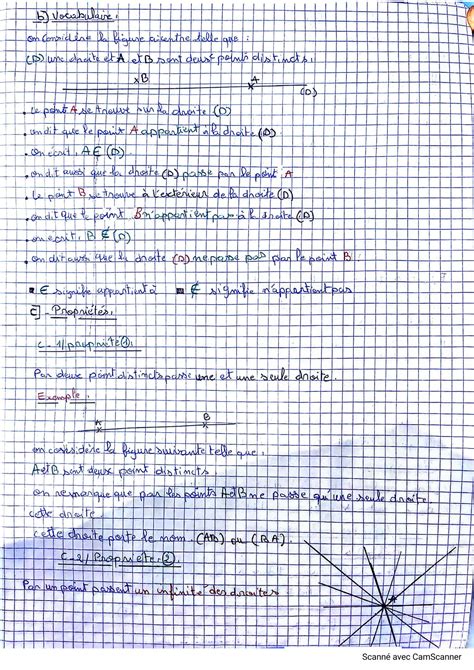 b) Vocabulaire:
on considère la figure ci contre telle que :
(D) une droite et A et B sont deux points distincts.
B
A
(D)
. Le point A se trouve sur la droite (D)
. on dit que le point A appartient à la droite (D)
. on écrit. A ∈ (D)
. on dit aussi que la droite (D) passe par le point A
. Le point B se trouve à l'extérieur de la droite (D)
. on dit que le point B n'appartient pas à la droite (D)
. on ecrit. B ∉ (D)
. on dit aussi que la droite (D) ne passe pas par le point B
∈ signifie appartient à ∉ signifie n'appartient pas
c] - Propriétés:
c - 1/ propriété ①.
Par deux point distincts passe une et une seule droite.
Exemple :
A
B
on considère la figure suivante telle que :
A et B sont deux point distincts.
on remarque que par les points A et B ne passe qu'une seule droite.
cette droite.
cette droite porte le nom. (AB) ou (BA).
C-2/ Propriété ②
Par un point passent un infinité des droites
A
Scanné avec CamScanner